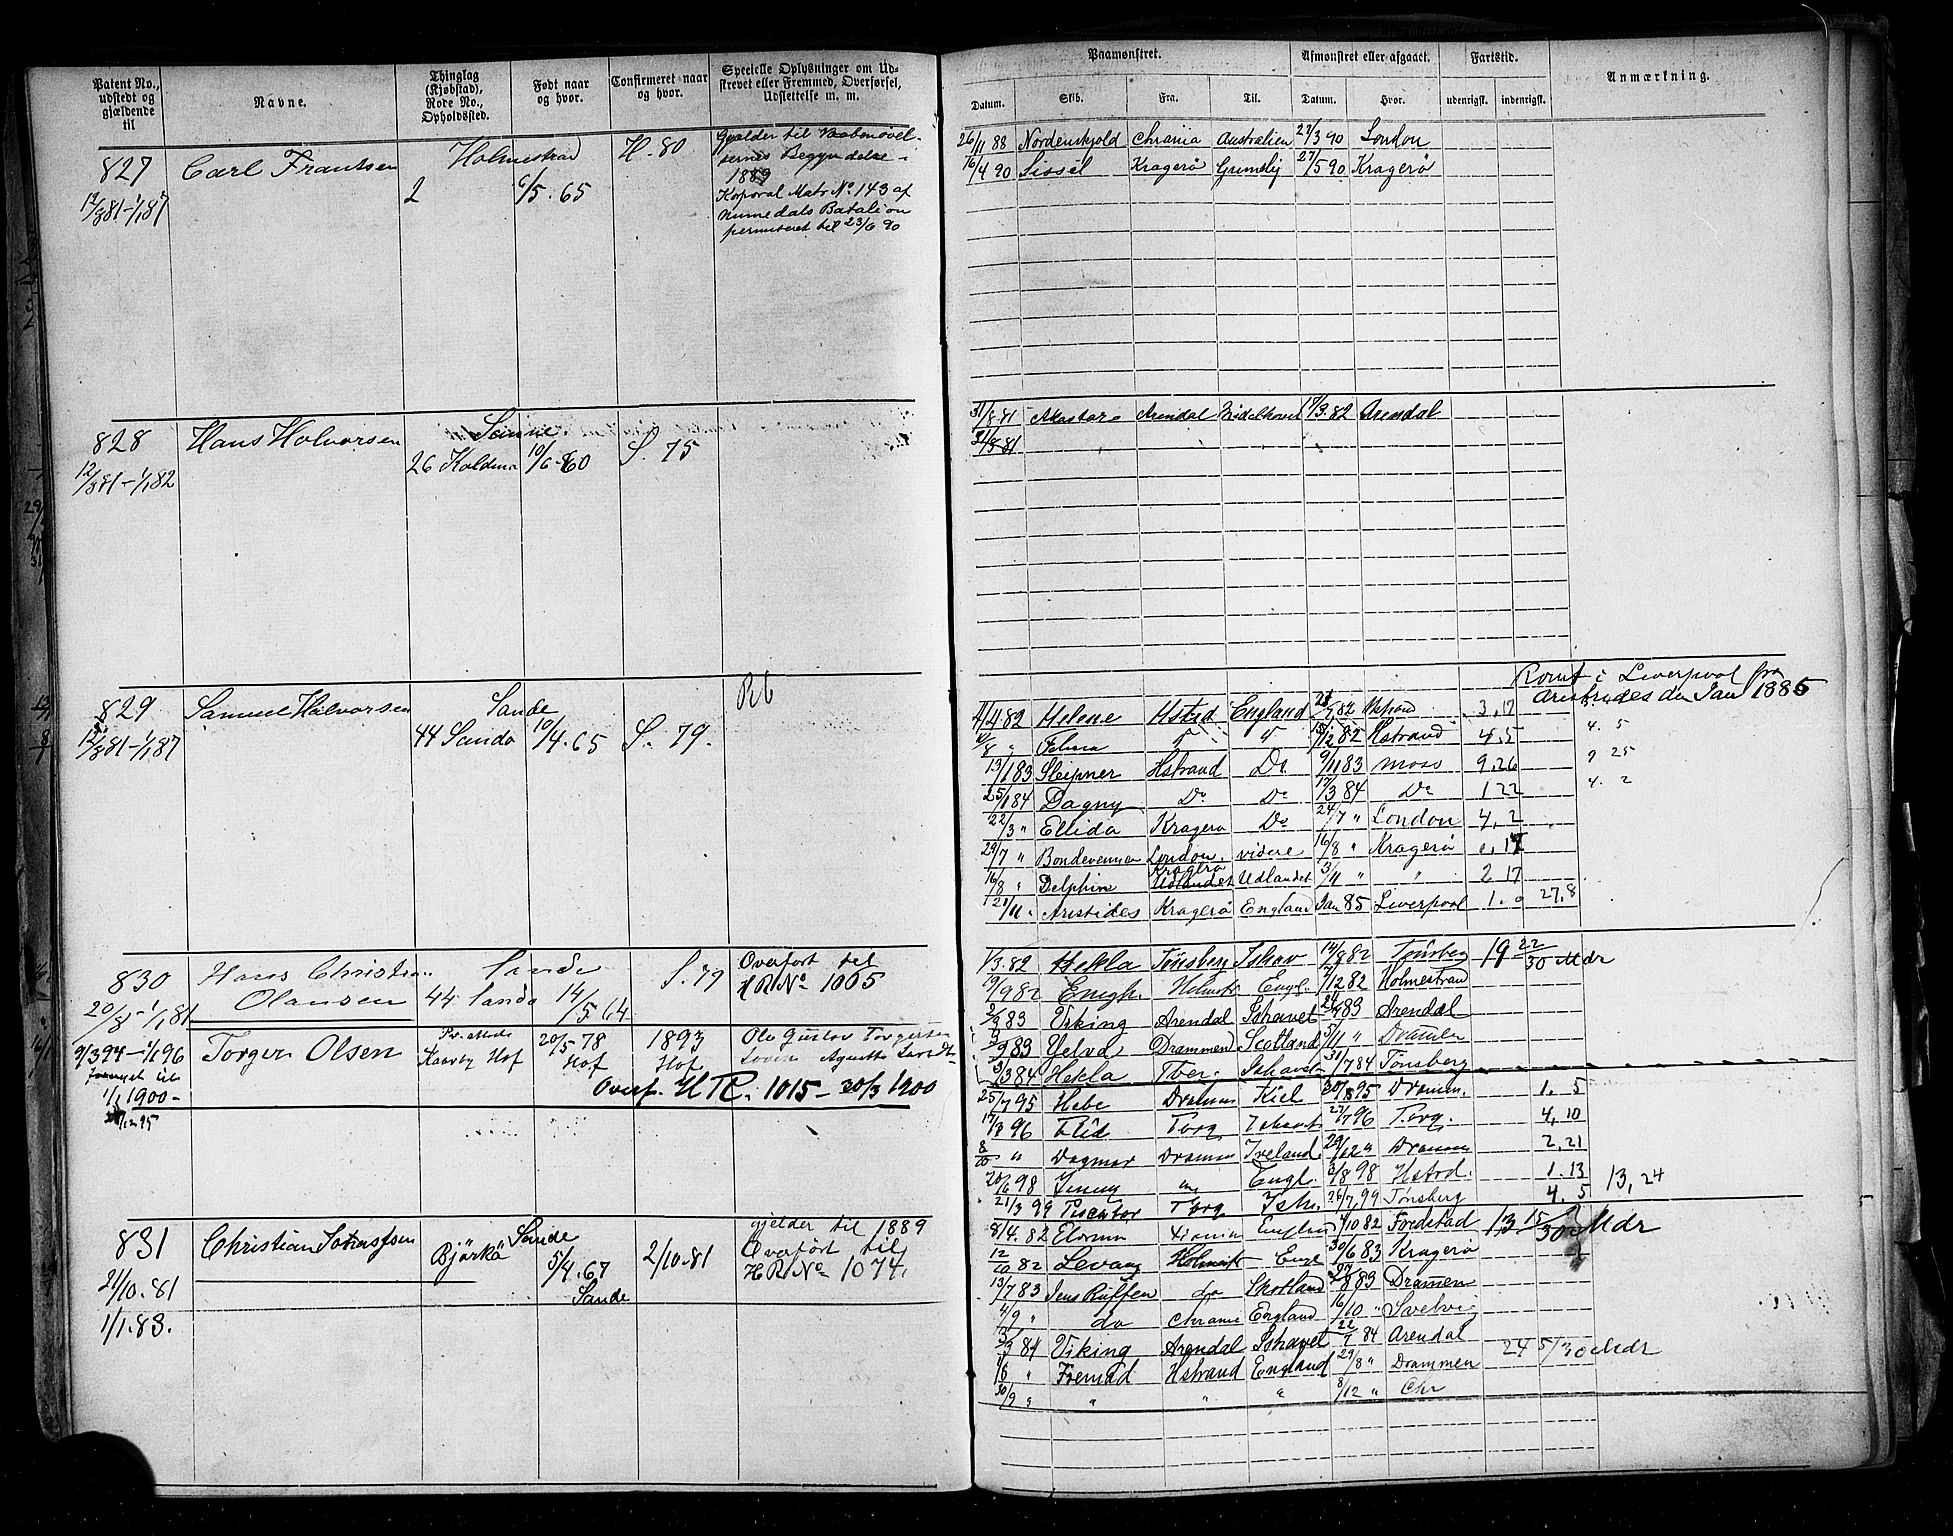 Patent No., udstedt og gjældende til
Navne.
Thinglag (Kjøbstad), Rode No., Opholdssted.
Født naar og hvor.
Confirmeret naar og hvor.
Specielle Oplysninger om Udskrevet eller Fremmed, Overførsel, Udslettelse m. m.
Paamønstret.
Afmønstret eller afgaaet.
Fartstid.
Anmærkning.
Datum.
Skib.
Fra.
Til.
Datum.
Hvor.
udenrigsk.
indenrigsk.
827 Carl Frantsen Holmestrand H. 80
12/8 81 – 1/1 87 2 6/5. 65
1889
Korporal Matr No. 143 af
Numedals Batalion
permiteret til 23/6 90
26/11 88 Nordenskjold Chrania Australien 27/3 90 London
16/4 90 Sissel Kragerø Grimsby 27/5 90 Kragerø
828 Hans Halvorsen S. 75
12/8 81 – 1/1 82 26 10/6 60
31/8 81 Arendal 82 Arendal
31/8 81
829 Samuel Halvorsen Sande
12/8 81 – 1/1 87 44 Sande 10/4. 65 S. 79.
Romt i Liverpool fra
Aristides den Jan 1885
4/4 82 Helene Hstrd England 82 3, 17
Hstrand 4, 5
4. 5
13/1 83 Sleipner Hstrand Do 9/11 83 Moss 9, 26
9 25
25/1 84 Dagny Do Do 17/3 84 Do 1 22
4. 2
22/3 " Ellida Kragerø Do 24/7 " London 4, 2
29/7 " London videre 16/8 " Kragerø
16/8 " Delphin Kragerø Udlandet Udlandet 3/11 " " 2 17
21/11. Aristides Kragerø England Jan 85 Liverpool 1. 0 27,8
830 Hans Christian Sande S. 79 Overført til
Olausen 44 Sande 14/5 64 HR No 1005
20/8 – 1/1 81
1/3. 82 Hekla Tønsberg Ishav 14/8 82 Tønsberg 19 22/30 Mdr
19/9 82 Engl. 82 Holmestrand
83 Viking Arendal Ishavet 83 Arendal
83 Yelva Drammen Scotland 5/11 " Drammen
3/3 84 Hekla Tber. Ishavet 31/7 84 Tønsberg
9/3 94 – 1/1 96 Torger Olsen Hof 20/5 78 Hof 1893 Hof Ole Gustav Torgersen
1/1 1900 –
Overf. H R. 1015 – 20/3 1900
25/7 95 Hebe Drammen Kiel 30/8 95 Dramm. 1. 5
96 Torg 27/7 96 Torg. 4, 10
8/10 " Dagmar Dramm Ireland 29/12 " Dramm 2, 21
20/6 98 Jenny Engl. 3/8 98 Hstrd. 1. 13 13, 24
21/3 99 Torg Ish. 26/7, 99 Tønsberg 4. 5
831 Christian Josefsen Sande gjelder til 1889
Bjørkø 5/4. 67 2/10. 81 Overført til
21/10. 81 Sande HR No 1074.
1/1. 83.
8/4. 82 10 82 Fredstad 13 15/30 Mdr
12/10 82 Levang Engl 30/6 83 Kragerø
13/7 83 Jens Ruffen do Skotland 83 Dramen
4/9 " do Chrania England 16/10 " Svelvig
84 Viking Arendal Ishavet 84 Arendal
Fremad Hstrand England 29/8 " Drammen 24 5/30 Mdr
30/9 " " " " 8/12 " Chr